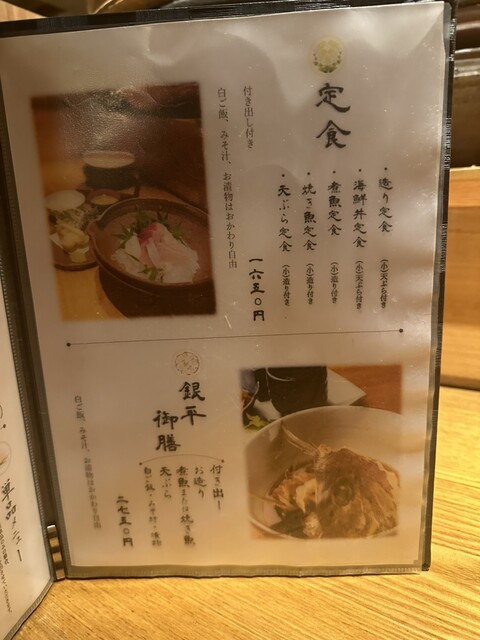 定食
・造り定食 (小)天ぷら付き
・海鮮丼定食 (小)天ぷら付き
・煮魚定食 (小)造り付き
・焼き魚定食 (小)造り付き
・天ぷら定食 (小)造り付き
一六五〇円
付き出し付き
白ご飯、みそ汁、お漬物はおかわり自由
銀平
御膳
付き出し
お造り
煮魚または焼き魚
天ぷら
白ご飯・みそ汁・漬物
二七五〇円
白ご飯、みそ汁、お漬物はおかわり自由
単品メニュー